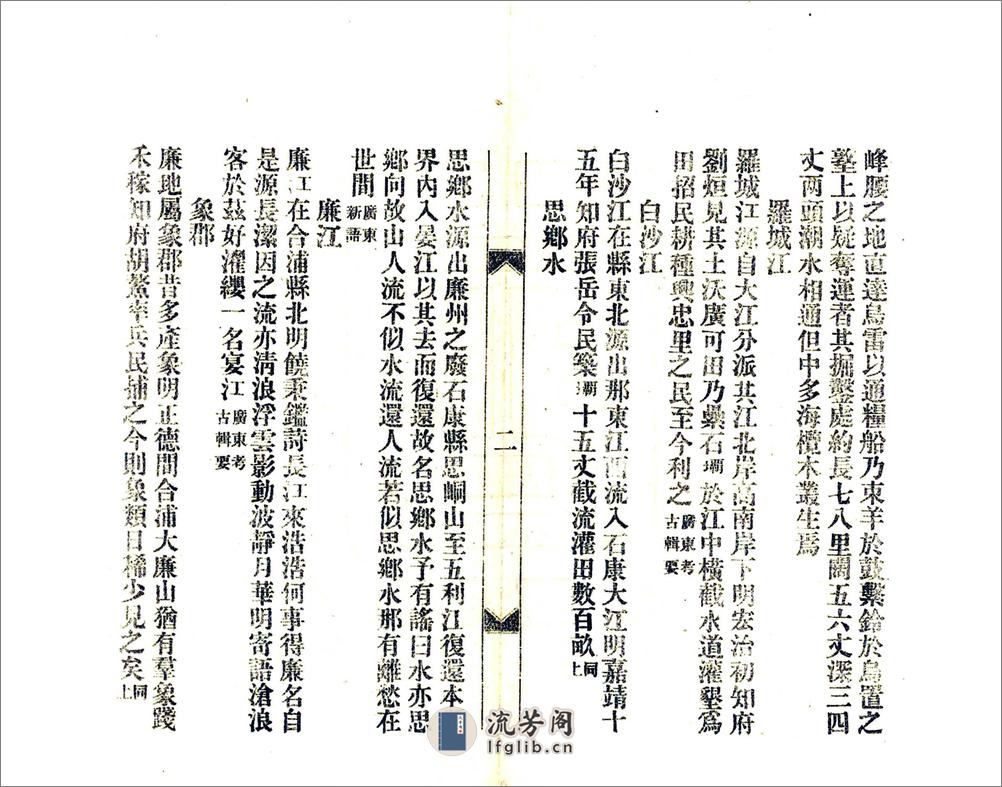 峰腰之地直達烏雷以通糧船乃束羊於鼓繫鈴於鳥置之
塹上以疑奪運者其掘鑿處約長七八里闊五六丈深三四
丈两頭潮水相通但中多海欖木叢生焉
羅城江
羅城江源自大江分派其江北岸高南岸下明宏治初知府
劉烜見其土沃廣可田乃纍石壩於江中橫截水道灌墾爲
田招民耕種興忠里之民至今利之廣東考古輯要
白沙江
白沙江在縣東北源出那東江西流入石康大江明嘉靖十
五年知府張岳令民築壩十五丈截流灌田數百畝同上
思鄉水
二
思鄉水源出廉州之廢石康縣思峒山至五利江復還本
界內入晏江以其去而復還故名思鄉水予有謠曰水亦思
鄉向故山人流不似水流還人流若似思鄉水那有離愁在
世間廣東新語
廉江
廉江在合浦縣北明饒秉鑑詩長江來浩浩何事得廉名自
是源長潔因之流亦淸浪浮雲影動波靜月華明寄語滄浪
客於茲好濯纓一名宴江廣東考古輯要
象郡
廉地屬象郡昔多產象明正德間合浦大廉山猶有羣象踐
禾稼知府胡鰲率兵民捕之今則象類日稀少見之矣同上
流芳阁
lfglib.cn